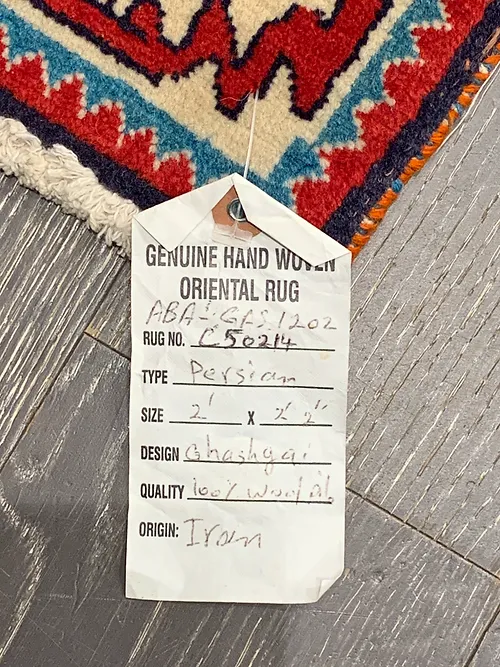 GENUINE HAND WOVEN
ORIENTAL RUG
RUG NO. C50214
TYPE Persian
SIZE 2' X 2' 2"
DESIGN Ghashgai
QUALITY 100% wool
ORIGIN: Iran